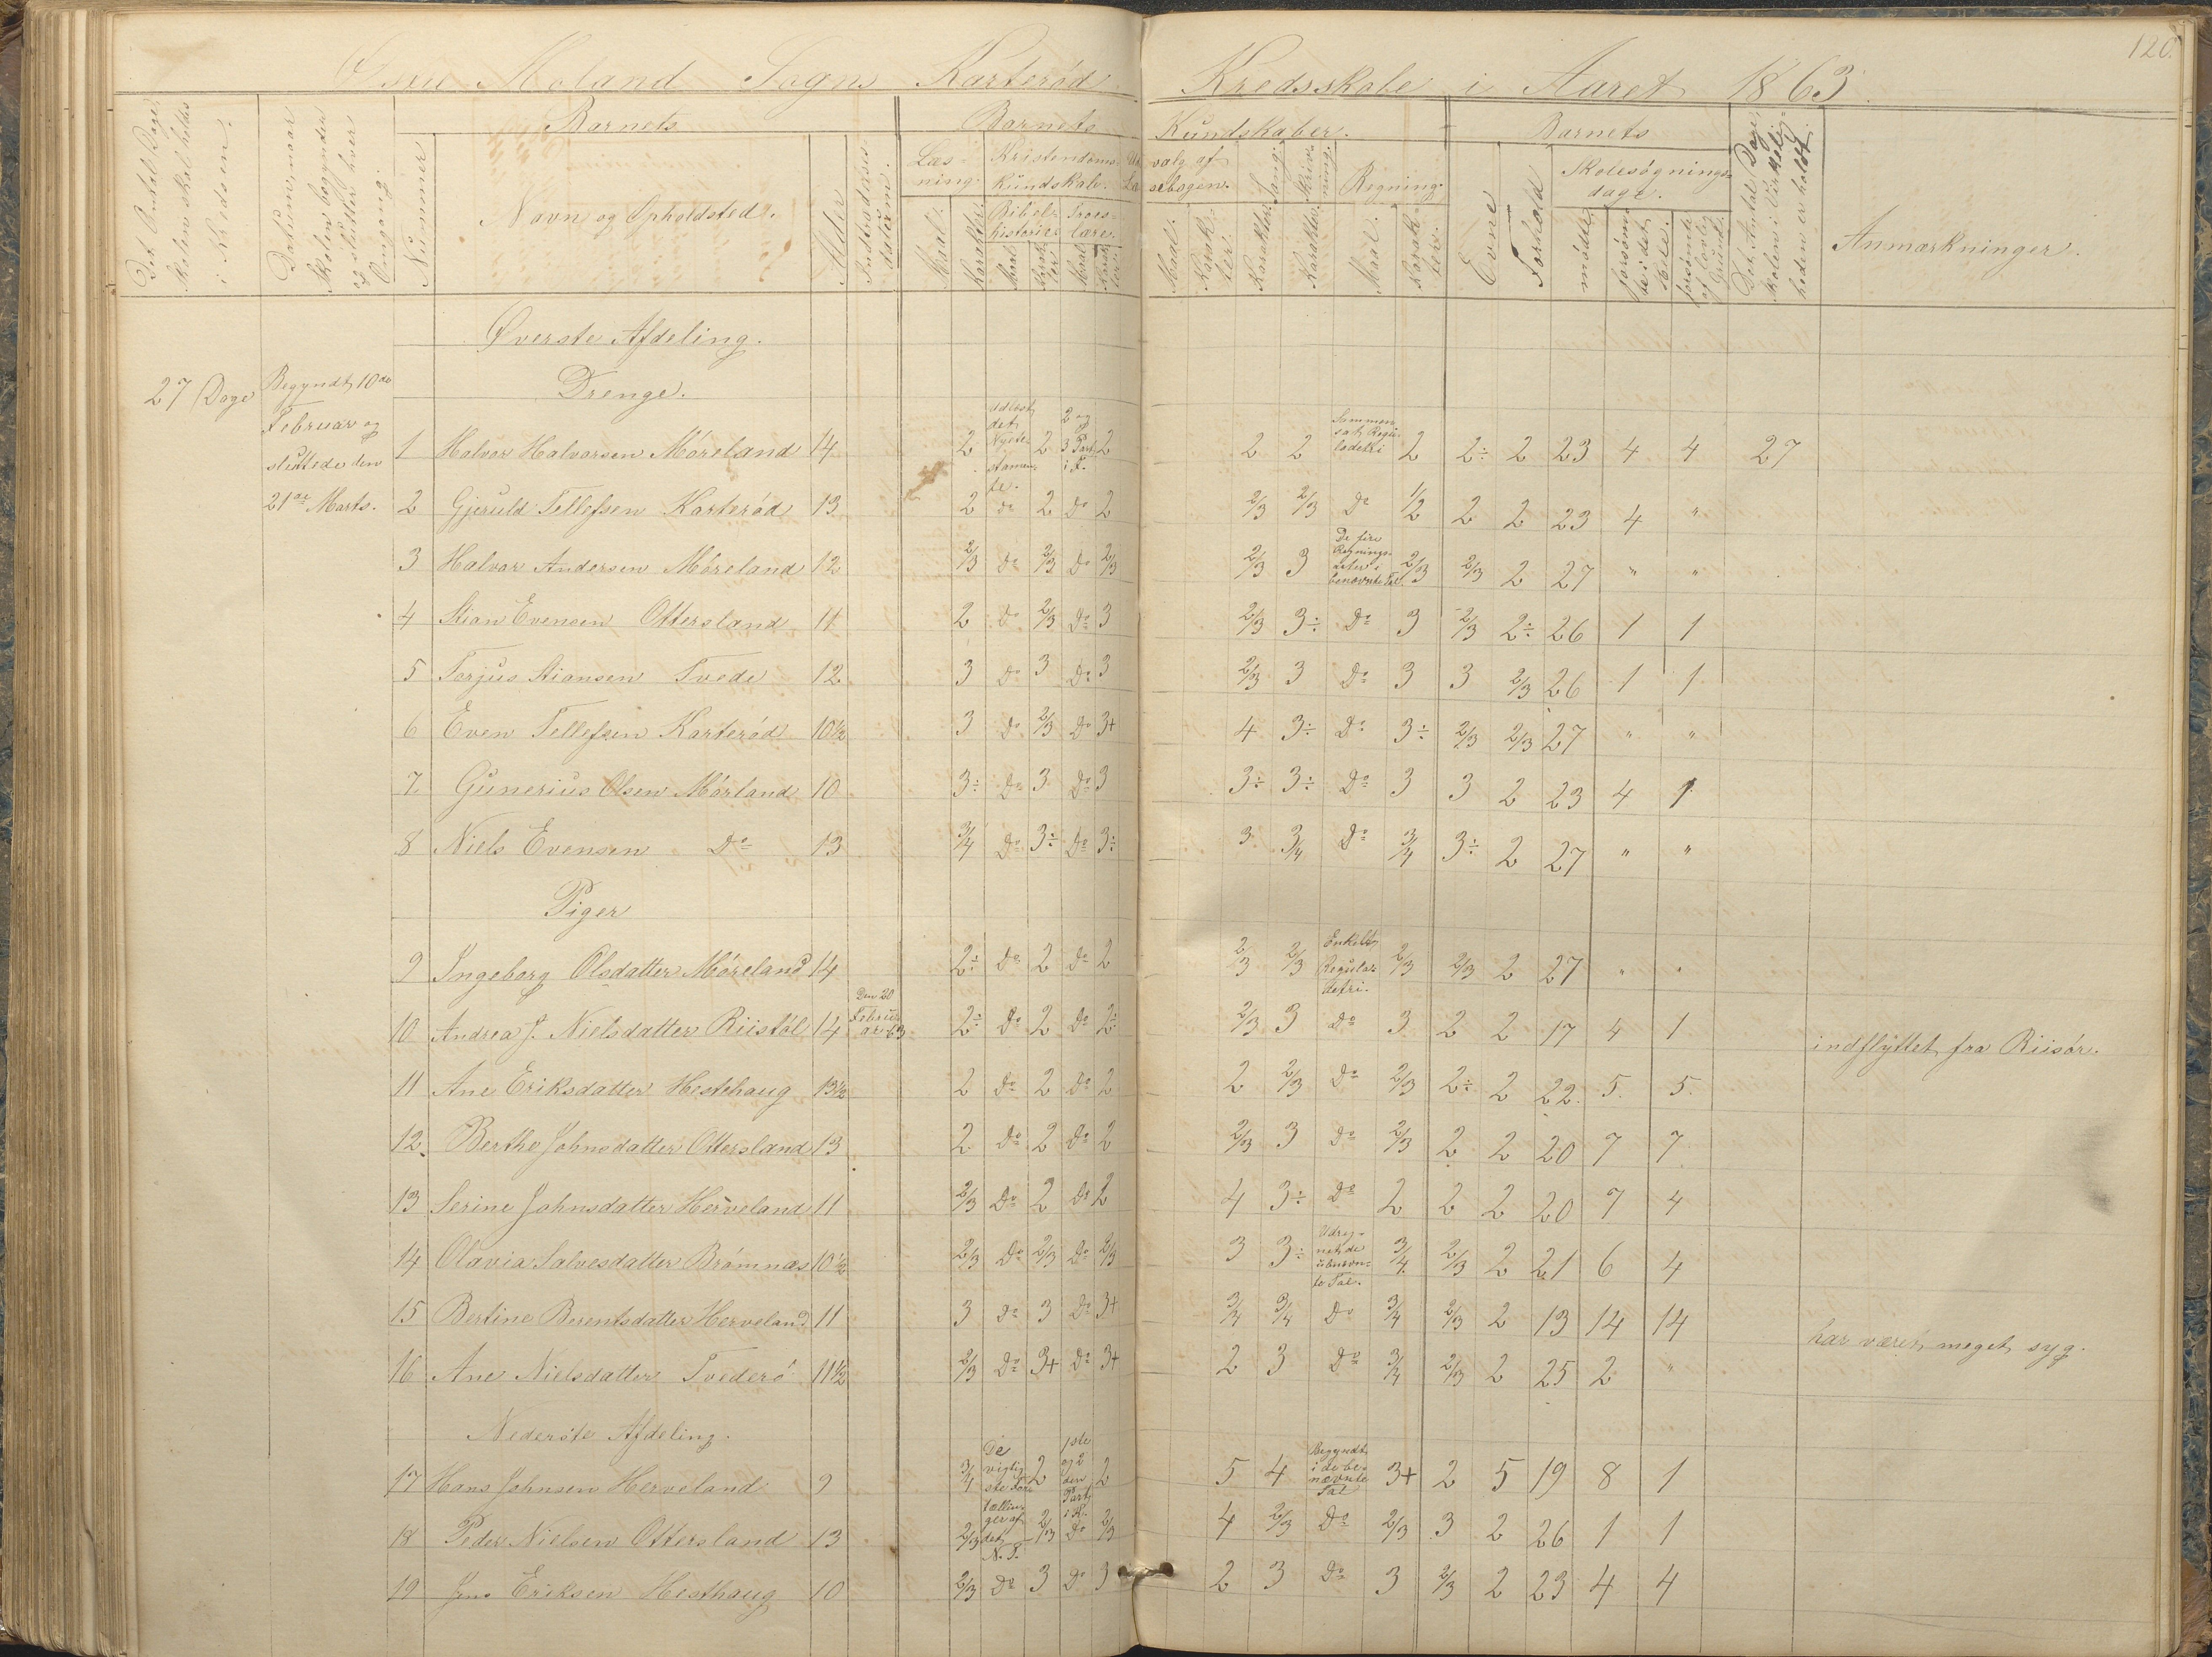 120.
Østre Molands Sogns Karterød Kredsskole i Aaret 1863.
Det Antal Dage Skolen skal holdes i Kredsen.
Datum, naar Skolen begynder og slutter hver Omgang.
Nummer
Barnets
Navn og Opholdsted.
Alder
Indtrædelses-datum.
Barnets Kundskaber.
Læs-ning.
Kristendoms-kundskab.
Bibel-historie
Troes-lære.
Maal.
Karakter.
Ud-valg af Læ-sebogen.
Sang.
Skriv-ning.
Regning.
Barnets
Evne
Forhold
Skolesøgnings-dage.
mødte.
forsømte i det Hele.
forsømte af lovlig Grund.
Det Antal Dage Skolen i Virkelig-heden er holdt.
Anmærkninger.
Øverste Afdeling.
Drenge.
27 Dage
Begyndt 10de
Februar og
sluttede den
21de Marts.
1 Halvor Halvorsen Møreland 14 2 Udlæst det Nyte-stamen-te. 2 2 og 3 Part i F. 2 2 2 Sammen-sat Regu-ladetri 2 2÷ 2 23 4 4 27
2 Gjeruld Tellefsen Karterød 13 2 do 2 do 2 2/3 2/3 do 1/2 2 2 23 4 "
3 Halvor Andersen Møreland 12 2/3 do 2/3 do 2/3 2/3 3 De fire Regnings-arter i benævnte Tal. 2/3 2/3 2 27 " "
4 Stian Evensen Ottersland 11 2 do 2/3 do 3 2/3 3÷ do 3 2/3 2÷ 26 1 1
5 Torjus Stiansen Tvede 12 3 do 3 do 3 2/3 3 do 3 3 2/3 26 1 1
6 Even Tellefsen Karterød 10½ 3 do 2/3 do 3+ 4 3÷ do 3÷ 2/3 2/3 27 " "
7 Gunerius Olsen Mørland 10 3÷ do 3 do 3 3÷ 3÷ do 3 3 2 23 4 1
8 Niels Evensen Do 13 3/4 do 3÷ do 3÷ 3 3/4 do 3/4 3÷ 2 27 " "
Piger
9 Ingeborg Olsdatter Møreland 14 2÷ do 2 do 2 2/3 2/3 Enkelt Regula-detri. 2/3 2/3 2 27 " "
10 Andrea J. Nielsdatter Riistøl 14 Den 20 Febru-ar 63 2÷ do 2 do 2÷ 2/3 3 do 3 2 2 17 4 1 indflyttet fra Riisør.
11 Ane Eriksdatter Hestehaug 13½ 2 do 2 do 2 2 2/3 do 2/3 2÷ 2 22 5 5
12 Berthe Johnsdatter Ottersland 13 2 do 2 do 2 2/3 3 do 2/3 2 2 20 7 7
13 Serine Johnsdatter Herveland 11 2/3 do 2 do 2 4 3÷ do 2 2 2 20 7 4
14 Olavia Salvesdatter Brømnæs 10½ 2/3 do 2/3 do 2/3 3 3÷ Udreg-net de ubenævn-te Tal. 3/4 2/3 2 21 6 4
15 Bertine Berentsdatter Herveland 11 3 do 3 do 3+ 3/4 3/4 do 3/4 2/3 2 13 14 14 har været meget syg.
16 Ane Nielsdatter Tvederø 11½ 2/3 do 3+ do 3+ 2 3 do 3/4 2/3 2 25 2 "
Nederste Afdeling.
17 Hans Johnsen Herveland 9 3/4 De vigtig-ste For-tællin-ger af det N. T. 2 1ste og 2den Part i F. 2 5 4 Begyndt i de be-nævnte Tal 3+ 2 5 19 8 1
18 Peder Nielsen Ottersland 13 2/3 2/3 do 2/3 4 2/3 do 2/3 3 2 26 1 1
19 Jens Eriksen Hesthaug 10 2/3 do 3 do 3 2 3 do 3 2/3 2 23 4 4